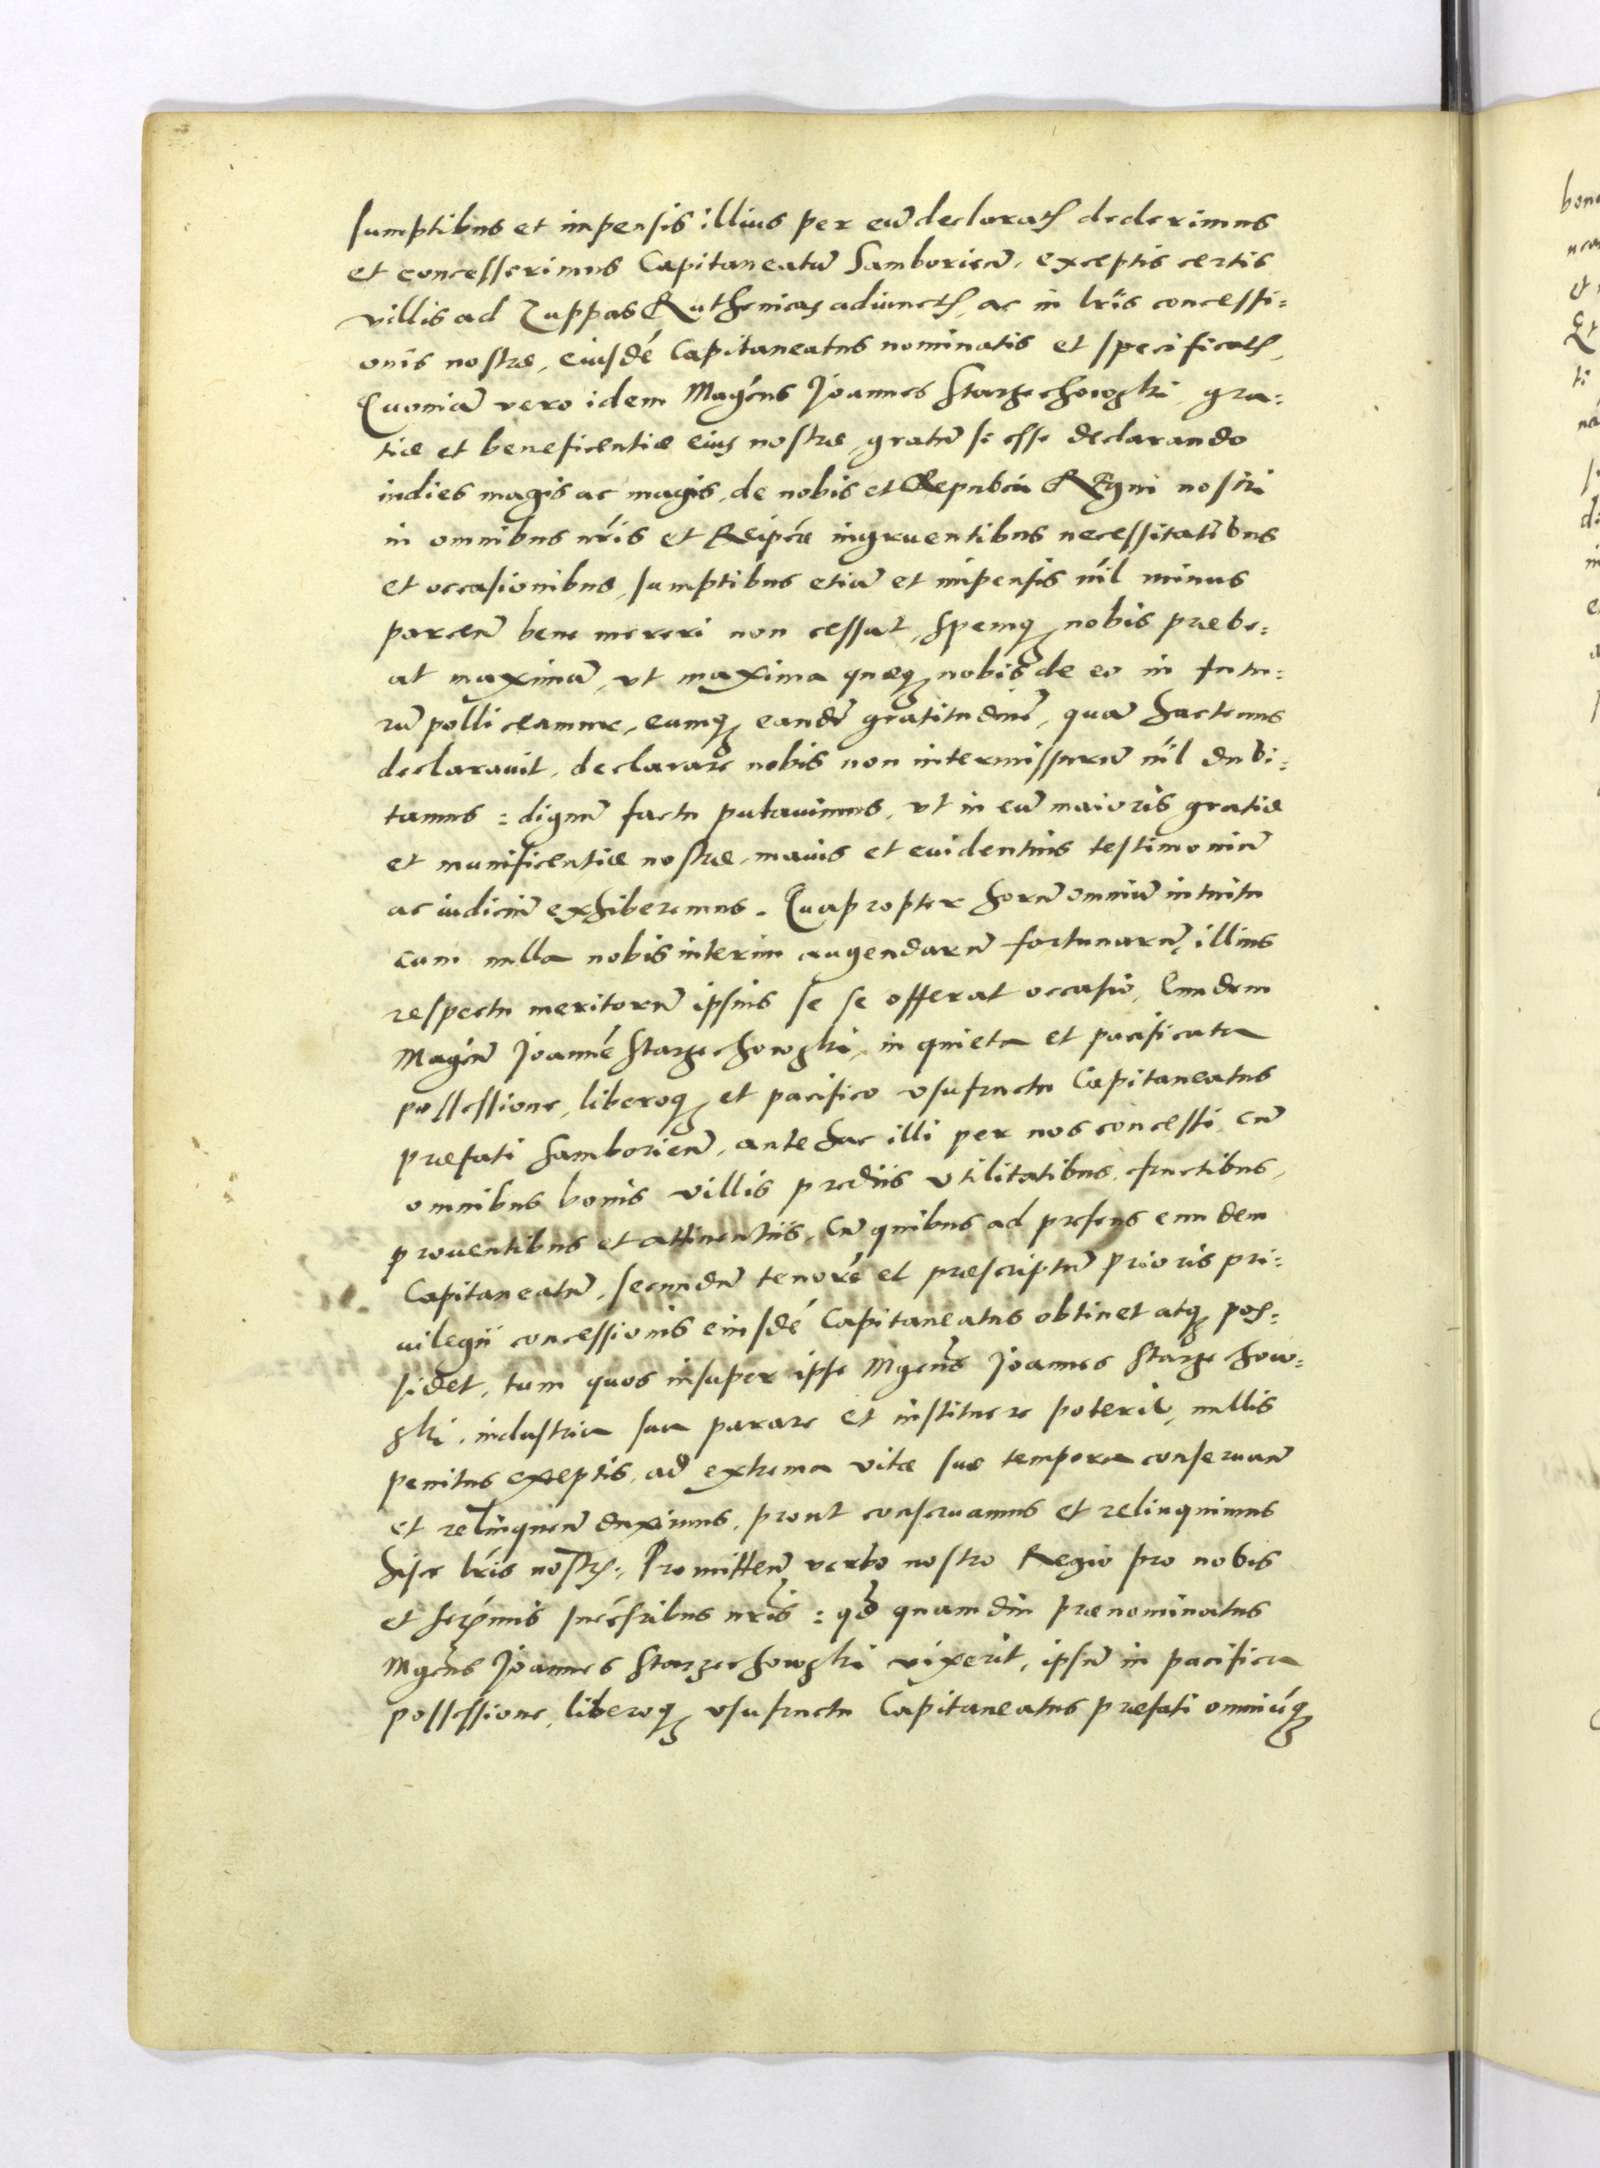 sumptibus et impensis illius per eū declorat͡ꝭ dederimus
et concesserimus Capitaneatū Samboriēn, exceptis certis
villis ad Zuppas Ruthenicas adiunctꝭ, ac in lrīs concessi=
onis nostræ, eiusdē Capitaneatus nominatis et specificatꝭ,
Quoniā vero idem Magēus Joannes Starzechowski gra=
tiæ et beneficentiæ eius nostræ, gratū se esse declarando
indies magis ac magis, de nobis et Repubcā Regni nostri
in omnibus nrīs et Reipcæ ingruentibus necessitatibus
et occasionibus, sumptibus etiā et impensis nīl minus
parcen̄ bene mereri non cessat, Spemqꝫ nobis præbe=
at maximā, vt maxima quæqꝫ nobis de eo in futu=
rū polliceamur, eumqꝫ eandē gratitudinē, quā hactenus
declarauit, declarare nobis non intermissurū nīl dubi=
tamus: dignū factu putauimus, vt in eū maioris gratiæ
et munificentiæ nostræ, maius et euidentius testimoniū
ac iudiciū exhiberemus. Quapropter horū omniū intuitu
cum nulla nobis interim augendarū fortunarū illius
respectu meritorū ipsius se se offerat occasio, Eundem
Magcū Joannē Starzechowski, in quieta et pacificata
possessione, liberoqꝫ et pacifico vsufructu Capitaneatus
præfati Samborien̄, antehac illi per nos concessi, cū
omnibus bonis villis prediis vtilitatibus, fructibus,
prouentibus et attinentiis, Cū quibus ad presens eundem
Capitaneatū, secundū tenorē et præscriptū prioris pri=
uilegii concessionis eiusdē Capitaneatus obtinet atqꝫ pos=
sidet, tum quos insuper ipse Mgcus Joannes Starzechow=
ski, industria sua parare et instituere poterit, nullis
penitus exceptis, ad extrema vitæ suæ tempora conseruan̄
et relinquen̄ duximus, prout conseruamus et relinquimus
hisce lrīs nostrꝭ. Promitten̄ verbo nostro Regio pro nobis
et serēmis succēsribus nrīs: qđ quamdiu prænominatus
Mgcus Joannes Starzechowski vixerit, ipsū in pacifica
possessione, liberoqꝫ vsufructu Capitaneatus præfati omniūqꝫ